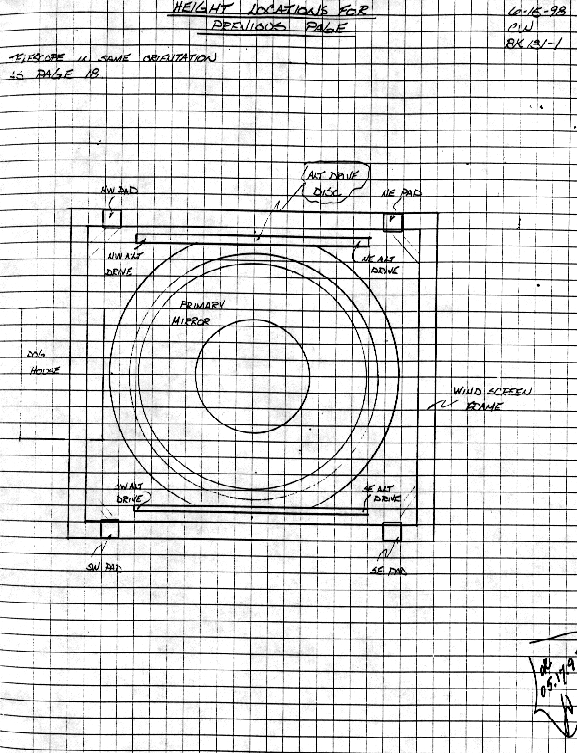 HEIGHT LOCATIONS FOR
PREVIOUS PAGE
6-15-98
BK 131-1
TELESCOPE IN SAME ORIENTATION
AS PAGE 18
ALT DRIVE
DISC
NW PAD
NE PAD
NW ALT
DRIVE
NE ALT
DRIVE
PRIMARY
MIRROR
DOG
HOUSE
WIND SCREEN
FRAME
SW ALT
DRIVE
SE ALT
DRIVE
SW PAD
SE PAD